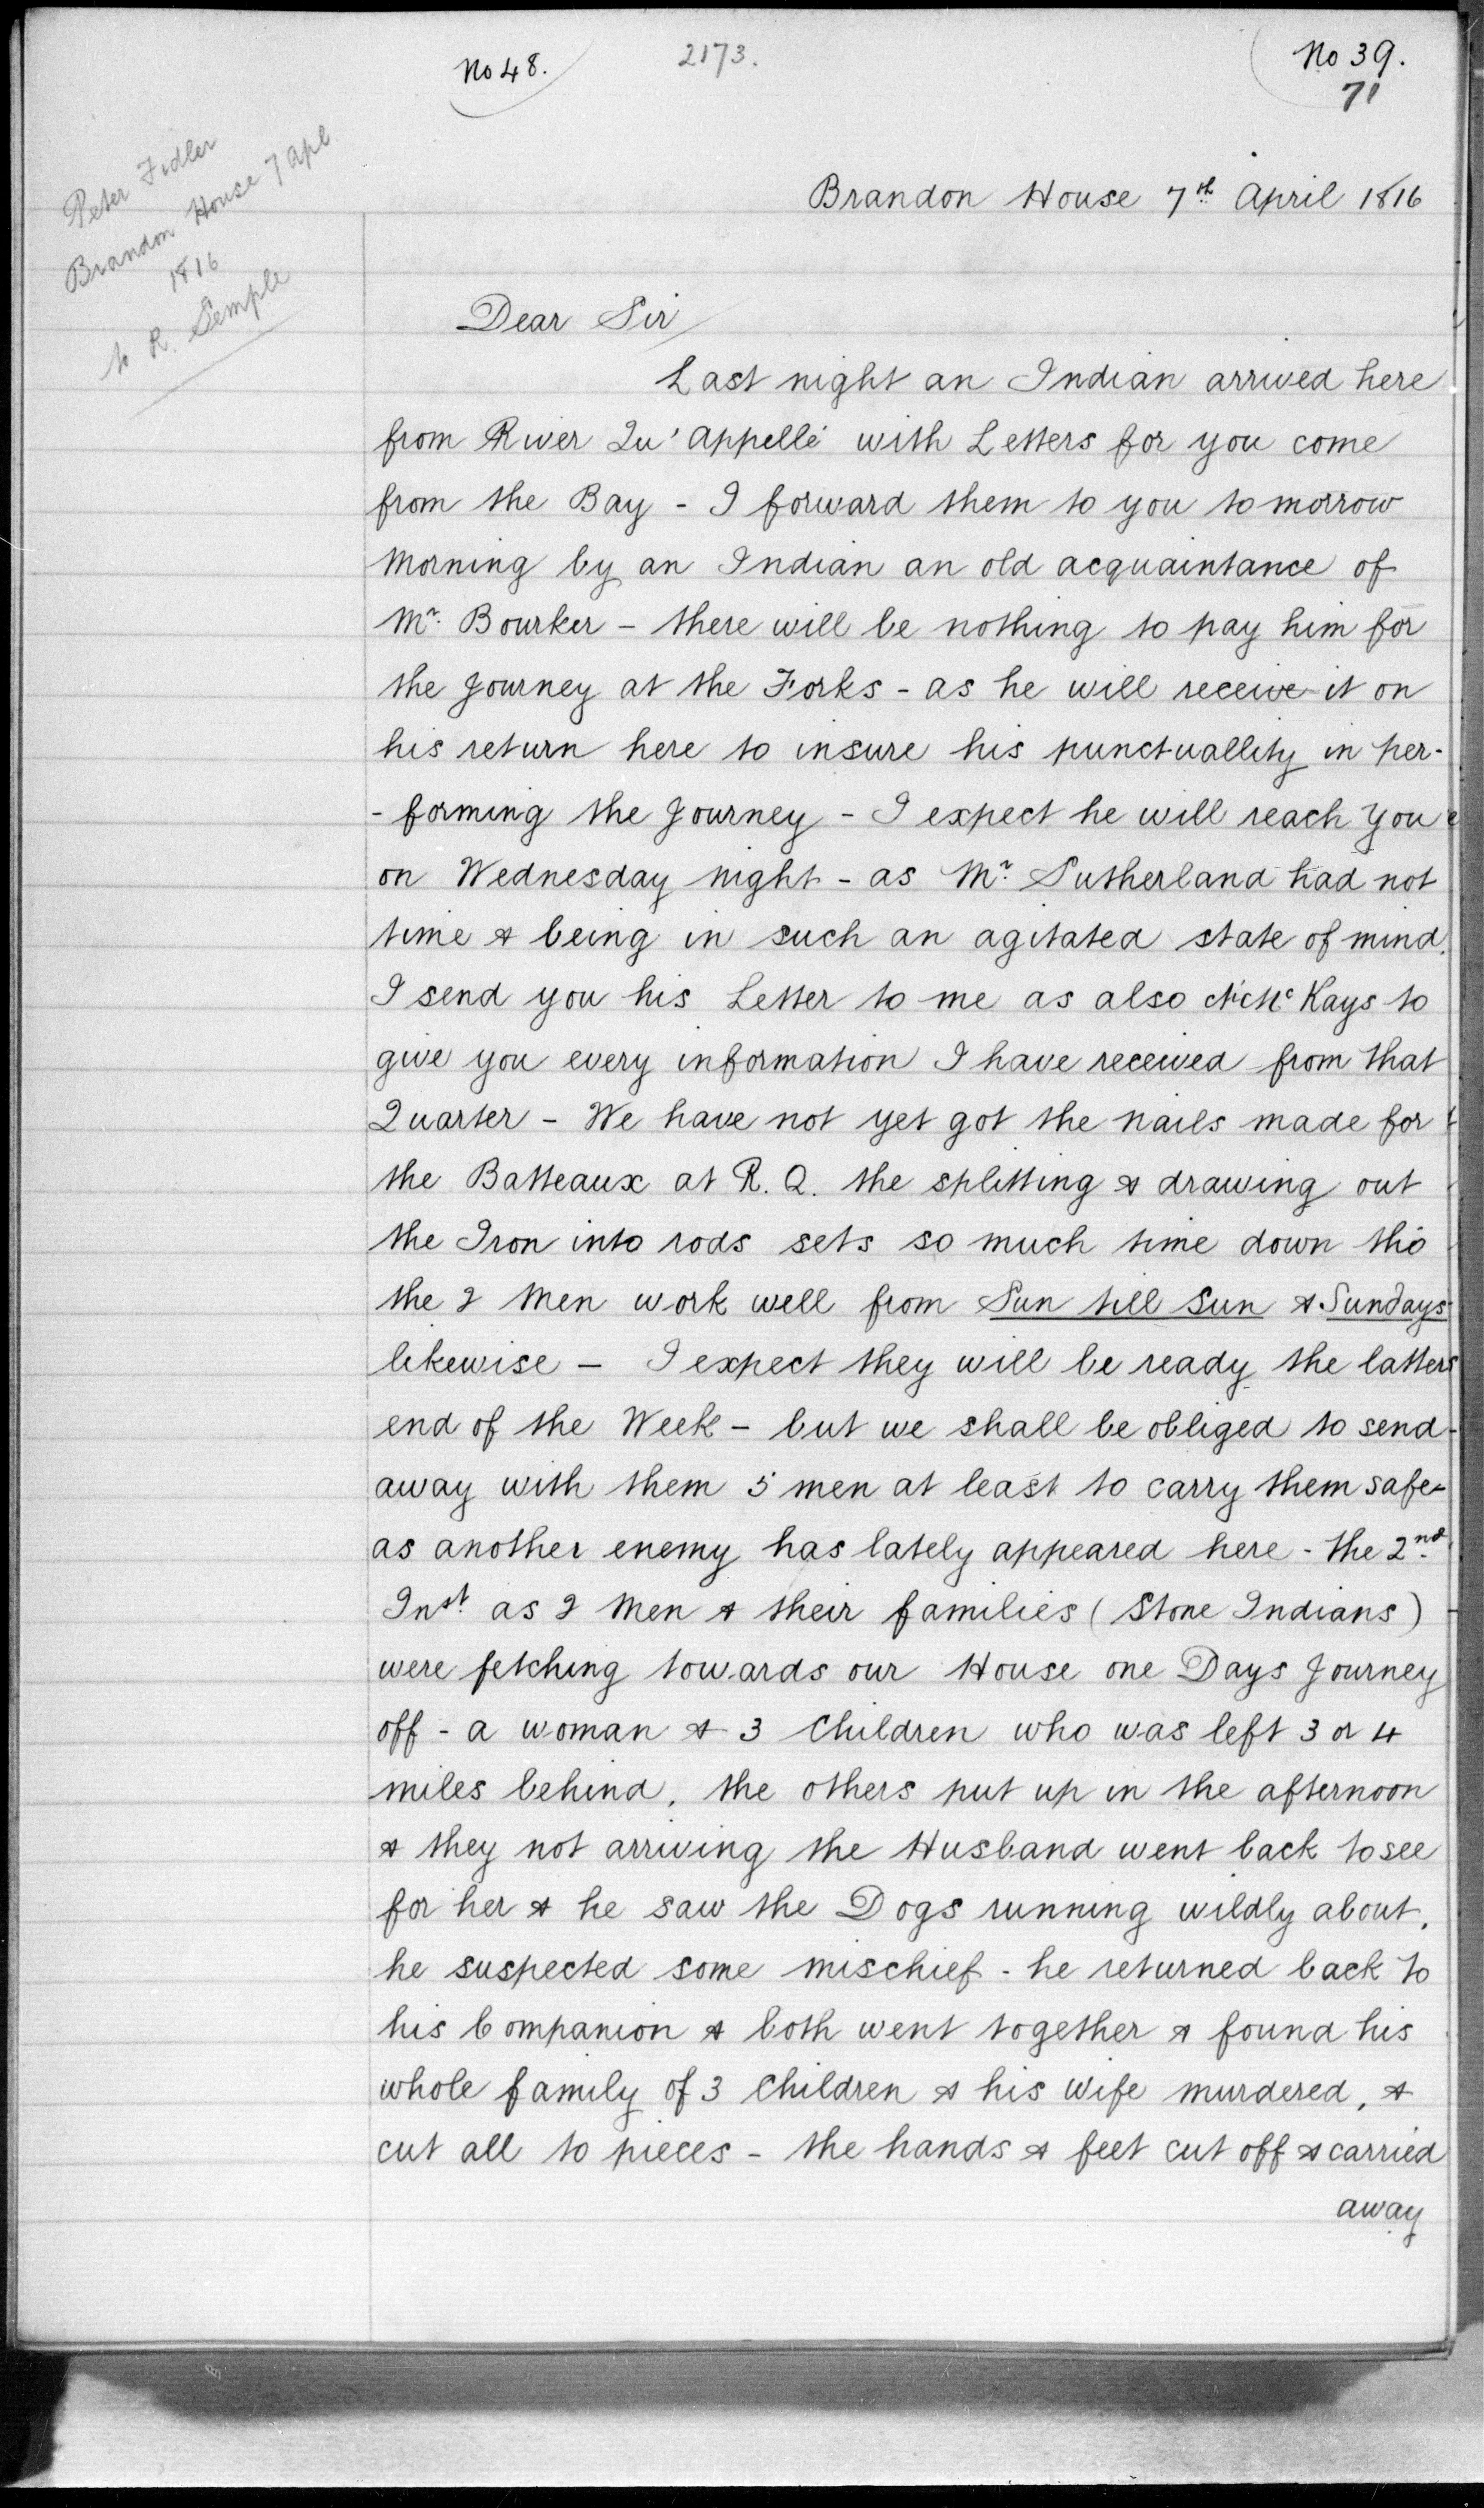 No 48.
2173.
No 39.
71
Peter Fidler
Brandon House 7 Apl
1816
to R. Semple
Brandon House 7th April 1816
Dear Sir
Last night an Indian arrived here
from River Qu'Appellé with Letters for you come
from the Bay - I forward them to you to morrow
Morning by an Indian an old acquaintance of
Mr. Bourker - there will be nothing to pay him for
the Journey at the Forks - as he will receive it on
his return here to insure his punctuallity in per-
- forming the Journey - I expect he will reach you
on Wednesday night - as Mr. Sutherland had not
time & being in such an agitated state of mind.
I send you his Letter to me as also Mc Kays to
give you every information I have received from that
Quarter - We have not yet got the nails made for
the Batteaux at R. Q. the splitting & drawing out
the Iron into rods sets so much time down tho
the 2 Men work well from Sun till Sun & Sundays
likewise - I expect they will be ready the latter
end of the Week - but we shall be obliged to send
away with them 5 men at least to carry them safe
as another enemy has lately appeared here - the 2nd
Inst. as 2 Men & their families (Stone Indians)
were fetching towards our House one Days Journey
off - a woman & 3 Children who was left 3 or 4
miles behind, the others put up in the afternoon
& they not arriving the Husband went back to see
for her & he saw the Dogs running wildly about,
he suspected some mischief - he returned back to
his Companion & both went together & found his
whole family of 3 Children & his Wife murdered, &
cut all to pieces - the hands & feet cut off & carried
away